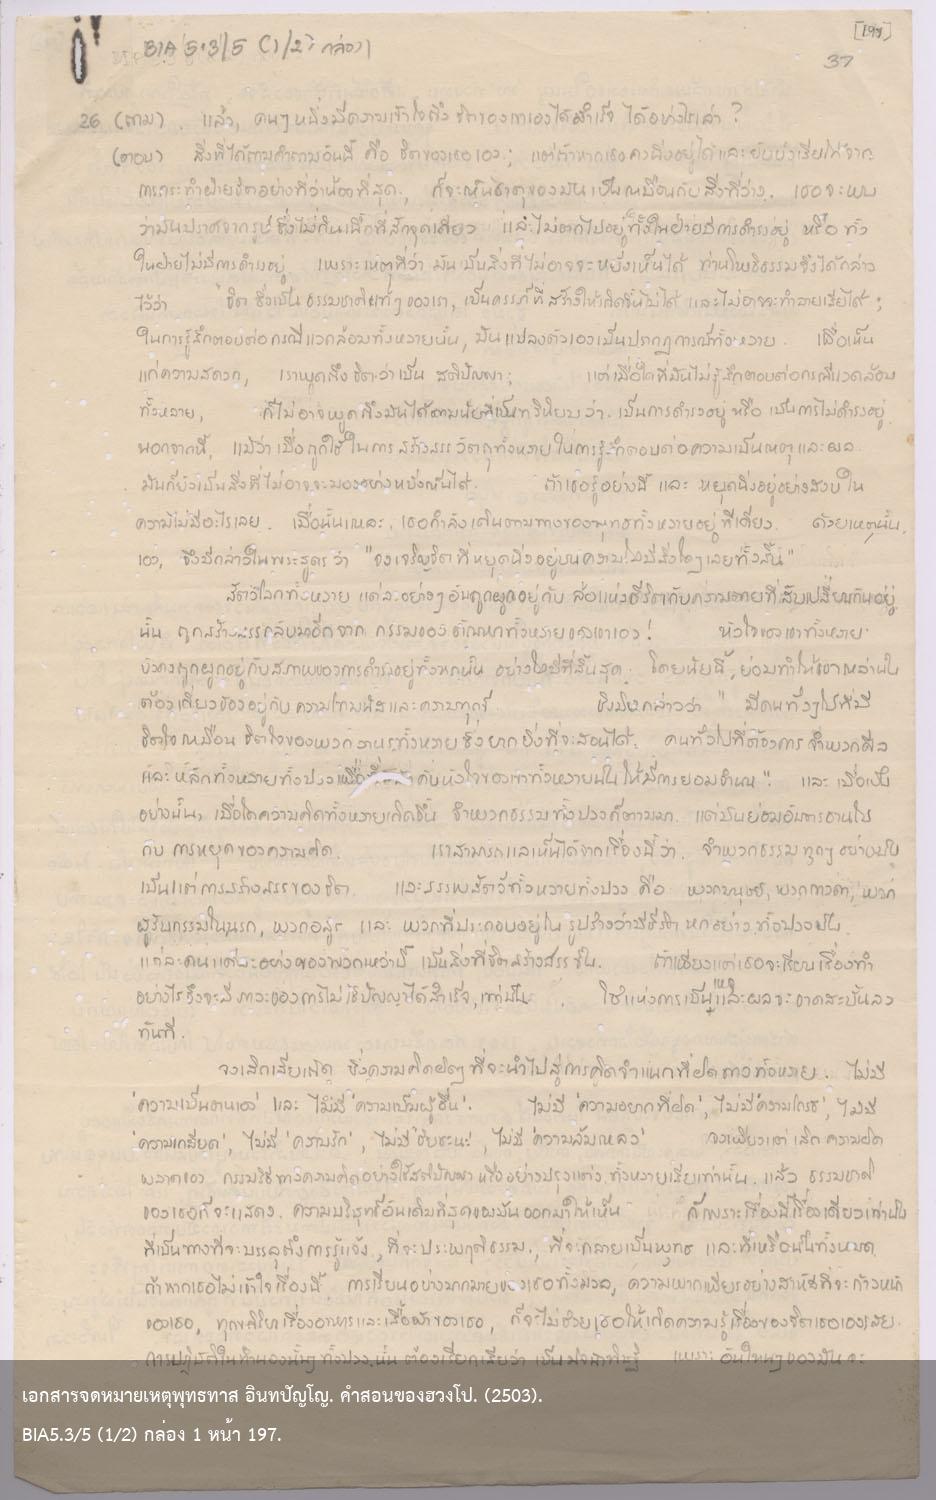 BIA 5.3/5 (1/2) กล่อง 1
[197]
37
26 (ถาม). แล้ว, คนๆ หนึ่งมีความเข้าใจถึง จิตของเขาเองได้สำเร็จ ได้อย่างไรเล่า ?
(ตอบ) สิ่งที่ได้ถามคำถามอันนี้ คือ จิตของเธอเอง; แต่ถ้าหากเธอคงนิ่งอยู่ได้ และยับยั้งเสียให้จาก
การกระทำฝ่ายจิตอย่างที่ว่าน้อยที่สุด, ก็จะเห็นธาตุของมัน เป็นเหมือนกับสิ่งที่ว่าง. เธอจะพบ
ว่ามันปราศจากรูป ซึ่งไม่กินเนื้อที่สักจุดเดียว และไม่ตกไปอยู่ทั้งในฝ่ายมีการดำรงอยู่ หรือ ทั้ง
ในฝ่ายไม่มีการดำรงอยู่ เพราะเหตุที่ว่า มันเป็นสิ่งที่ไม่อาจจะหยั่งเห็นได้ ท่านโพธิธรรมจึงได้กล่าว
ไว้ว่า จิต ซึ่งเป็น ธรรมชาติแท้ๆ ของเรา, เป็นครรภ์ที่สร้างให้เกิดขึ้นไม่ได้ และไม่อาจจะทำลายเสียได้;
ในการรู้สึกตอบต่อกรณีแวดล้อมทั้งหลายนั้น, มันแปลงตัวเองเป็นปรากฏการณ์ทั้งหลาย. เพื่อเห็น
แก่ความสดวก, เราพูดถึง จิต ว่าเป็น สติปัญญา; แต่เมื่อใดที่มันไม่รู้สึกตอบต่อกรณีแวดล้อม
ทั้งหลาย, ก็ไม่อาจพูดถึงมันได้ตามนัยที่เป็น ว่า. เป็นการดำรงอยู่ หรือ เป็นการไม่ดำรงอยู่
นอกจากนี้, แม้ว่า เมื่อถูกใช้ ในการ สร้างสรร วัตถุทั้งหลาย ในการรู้สึกตอบต่อความเป็นเหตุและผล
มันก็ยังเป็นสิ่งที่ไม่อาจจะมองอย่างหยั่งเห็นได้. ถ้าเธอรู้อย่างนี้ และ หยุดนิ่งอยู่อย่างสงบ ใน
ความไม่มีอะไรเลย. เมื่อนั้นแหละ, เธอกำลังเดินตามทางของพุทธทั้งหลายอยู่ ทีเดียว. ด้วยเหตุนั้น
เอง, จึงมีกล่าวในพระสูตร ว่า "จงเจริญจิตที่หยุดนิ่งอยู่บนความไม่มีสิ่งใดๆ เลยทั้งสิ้น"
สัตว์โลกทั้งหลาย แต่ละอย่างๆ อันถูกผูกอยู่กับ ล้อแห่งชีวิตกับความตายที่สับเปลี่ยนกันอยู่
นั้น ถูกสร้างสรรกลับมาอีกจาก กรรมของ ตัณหาทั้งหลายของเขาเอง! หัวใจของเขาทั้งหลาย
ยังคงถูกผูกอยู่กับสภาพของการดำรงอยู่ทั้งหกนั้น อย่างไม่มีที่สิ้นสุด. โดยนัยนี้, ย่อมทำให้เขาเหล่านั้น
ต้องเกี่ยวข้องอยู่กับ ความโทมนัสและความทุกข์ กล่าวว่า " มีคนทั้งๆ ไปที่มี
จิตใจเหมือน จิตใจของพวกวานรทั้งหลาย ซึ่งยากยิ่งที่จะสอนได้. คนทั่วไปที่ต้องการ จำพวกศีล
และ หลักทั้งหลายทั้งปวง หัวใจของเขาทั้งหลายนั้น ให้มีการยอมจำนน". และ เมื่อเป็น
อย่างนั้น, เมื่อใดความคิดทั้งหลายเกิดขึ้น จำพวกธรรมทั้งปวงก็ตามมา. แต่มันย่อมอันตรธานไป
กับ การหยุดของความคิด. เราสามารถแลเห็นได้จากเรื่องนี้ว่า. จำพวกธรรม ทุกๆ อย่างนั้น
เป็นแต่การสร้างสรรของจิต. และสรรพสัตว์ทั้งหลายทั้งปวง คือ พวกมนุษย์, พวกเทวดา, พวก
ผู้รับกรรมในนรก, พวกอสูร และ พวกที่ประกอบอยู่ใน รูปร่างว่ามีชีวิต หกอย่าง ทั้งปวงนั้น.
แต่ละคนแต่ละอย่างของพวกเหล่านี้ เป็นสิ่งที่จิตสร้างสรรขึ้น. ถ้าเพียงแต่เธอจะเรียนเรื่องทำ
อย่างไรจึงจะมีภาวะของการไม่ใช้ปัญญาได้สำเร็จ, เท่านั้น. โซ่แห่งการเป็นเหตุและผลจะขาดสะบั้นลง
ทันที.
จงเลิกเสียเถิด ซึ่งความคิดผิดๆ ที่จะนำไปสู่การคิดจำแนกที่ผิดพลาดทั้งหลาย. ไม่มี
'ความเป็นตนเอง' และ ไม่มี 'ความเป็นผู้อื่น'. ไม่มี 'ความอยากที่ผิด', ไม่มี 'ความโกรธ', ไม่มี
'ความเกลียด', ไม่มี 'ความรัก', ไม่มี 'ชัยชนะ', ไม่มี 'ความล้มเหลว' จงเพียงแต่ เลิก ความผิด
พลาดของ กรรมวิธีทางความคิดอย่างใช้สติปัญญา หรืออย่างปรุงแต่ง ทั้งหลายเสียเท่านั้น. แล้ว ธรรมชาติ
ของเธอก็จะแสดง. ความบริสุทธิ์อันเดิมที่สุดของมันออกมาให้เห็น ก็เพราะเรื่องนี้เรื่องเดียวเท่านั้น
ที่เป็นทางที่จะบรรลุถึงการรู้แจ้ง, ที่จะประพฤติธรรม, ที่จะกลายเป็นพุทธ และที่เหลือนั้นทั้งหมด
ถ้าหากเธอไม่เข้าใจเรื่องนี้ การเรียนอย่างมากมายของเธอทั้งมวล, ความพากเพียรอย่างสาหัสที่จะก้าวหน้า
ของเธอ, ทุกขกิริยาเรื่องอาหารและเสื้อผ้าของเธอ, ก็จะไม่ช่วยเธอให้เกิดความรู้เรื่องของจิตเธอเองเลย.
การปฏิบัติในทำนองนั้นๆ ทั้งปวงนั้น ต้องเรียกเสียว่า เป็นมิจฉาทิฏฐิ เพราะ อันไหนๆ ของมันจะ
เอกสารจดหมายเหตุพุทธทาส อินทปัญโญ. คำสอนของฮวงโป. (2503).
BIA5.3/5 (1/2) กล่อง 1 หน้า 197.